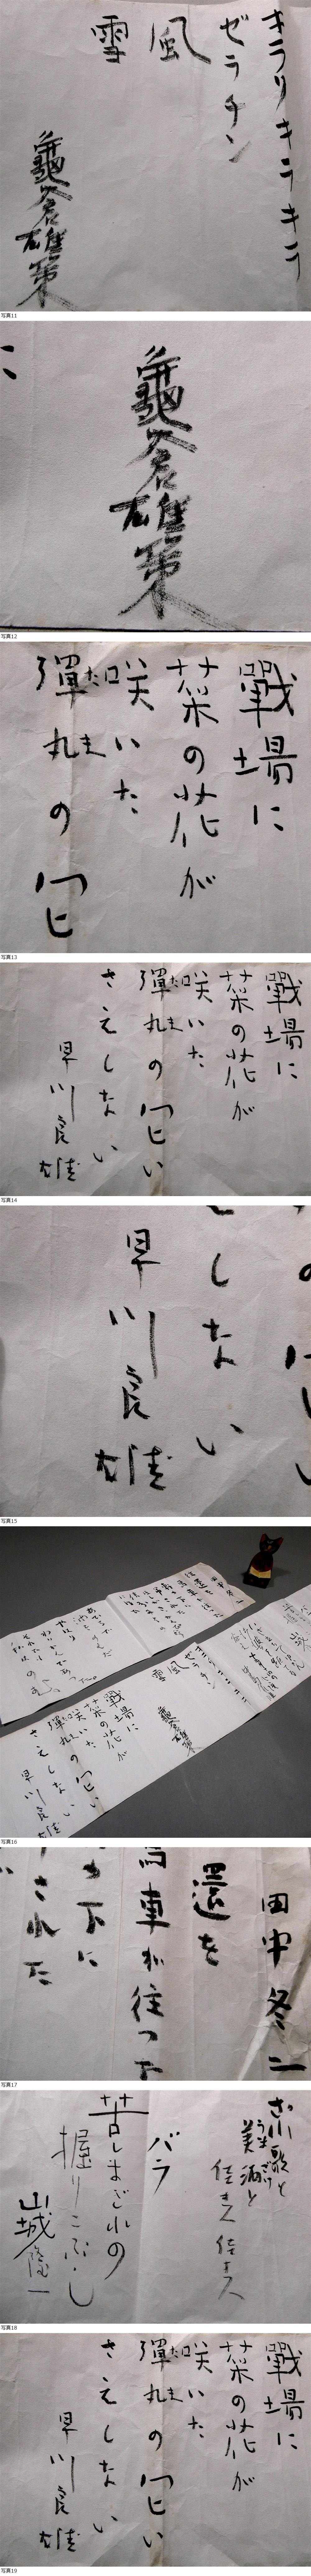 キラリキラキラ
ゼラチン
風
雪
龜倉雄策
写真11
龜倉雄策
写真12
戰場に
菜の花が
咲いた
彈丸の匂
たま
写真13
戰場に
菜の花が
咲いた
彈丸の匂い
たま
さえしない
早川良雄
写真14
しない
早川良雄
写真15
風
雪
龜倉雄策
戰場に
菜の花が
咲いた
彈丸の匂い
さえしない
早川良雄
写真16
田中冬二
還を
馬車が往った
下に
された
写真17
美酒と
うまざけ
佳き人佳き人
バラ
苦しまぎれの
握りこぶし
山城隆一
写真18
戰場に
菜の花が
咲いた
彈丸の匂い
たま
さえしない
早川良雄
写真19